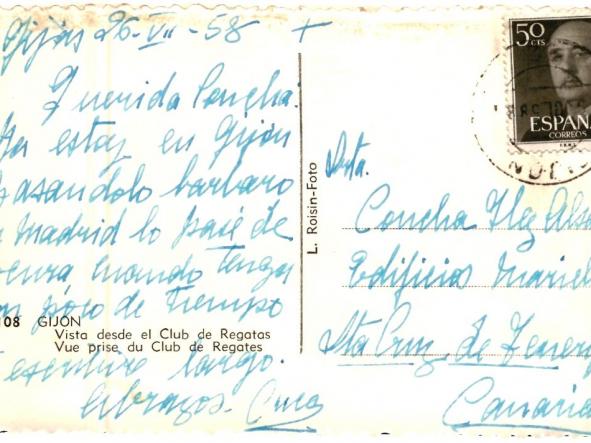 Gijón 26-VII-58 +
Querida Concha:
Ya estoy en Gijón
pasandolo barbaro
Madrid lo pasé de
cuando tenga
un poco de tiempo
escribire largo.
Abrazos-
108 GIJÓN
Vista desde el Club de Regatas
Vue prise du Club de Regates
L. Roisin-Foto
50
CTS
ESPAÑA
CORREOS
GIJON
Srta.
Concha
Edificio
Sta Cruz de Tener
Canaria